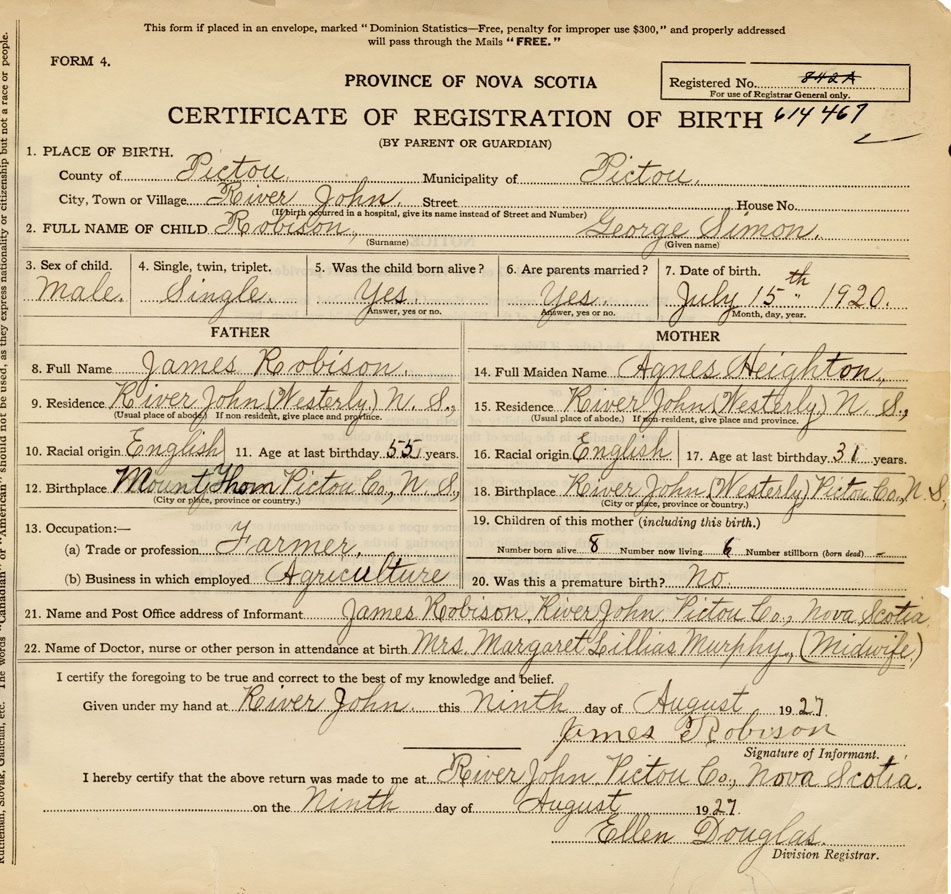 This form if placed in an envelope, marked "Dominion Statistics—Free, penalty for improper use $300," and properly addressed
will pass through the Mails "FREE."
FORM 4.
PROVINCE OF NOVA SCOTIA
Registered No. 842A
For use of Registrar General only.
CERTIFICATE OF REGISTRATION OF BIRTH 614467
(BY PARENT OR GUARDIAN)
1. PLACE OF BIRTH.
County of Pictou. Municipality of Pictou.
City, Town or Village River John. Street House No.
(If birth occurred in a hospital, give its name instead of Street and Number)
2. FULL NAME OF CHILD Robison, George Simon.
(Surname) (Given name)
3. Sex of child. 4. Single, twin, triplet. 5. Was the child born alive? 6. Are parents married? 7. Date of birth.
Male. Single. Yes. Yes. July 15th 1920.
Answer, yes or no. Answer, yes or no. Month, day, year.
FATHER MOTHER
8. Full Name James Robison. 14. Full Maiden Name Agnes Heighton,
9. Residence River John (Westerly) N. S., 15. Residence River John (Westerly) N. S.,
(Usual place of abode.) If non resident, give place and province. (Usual place of abode.) If non-resident, give place and province.
10. Racial origin English 11. Age at last birthday 55 years. 16. Racial origin English 17. Age at last birthday 31 years.
12. Birthplace Mount Thom Pictou Co., N. S., 18. Birthplace River John (Westerly) Pictou Co., N. S,
(City or place, province or country.) (City or place, province or country.)
13. Occupation:— 19. Children of this mother (including this birth.)
(a) Trade or profession Farmer. Number born alive 8 Number now living 6 Number stillborn (born dead) -
(b) Business in which employed Agriculture 20. Was this a premature birth? No.
21. Name and Post Office address of Informant James Robison, River John Pictou Co., Nova Scotia
22. Name of Doctor, nurse or other person in attendance at birth Mrs. Margaret Lillias Murphy, (Midwife.)
I certify the foregoing to be true and correct to the best of my knowledge and belief.
Given under my hand at River John. this Ninth day of August 1927
James Robison
Signature of Informant.
I hereby certify that the above return was made to me at River John Pictou Co., Nova Scotia.
on the Ninth day of August 1927
Ellen Douglas.
Division Registrar.
Ruthenian, Slovak, Galician, etc. The words "Canadian" or "American" should not be used, as they express nationality or citizenship but not a race or people.